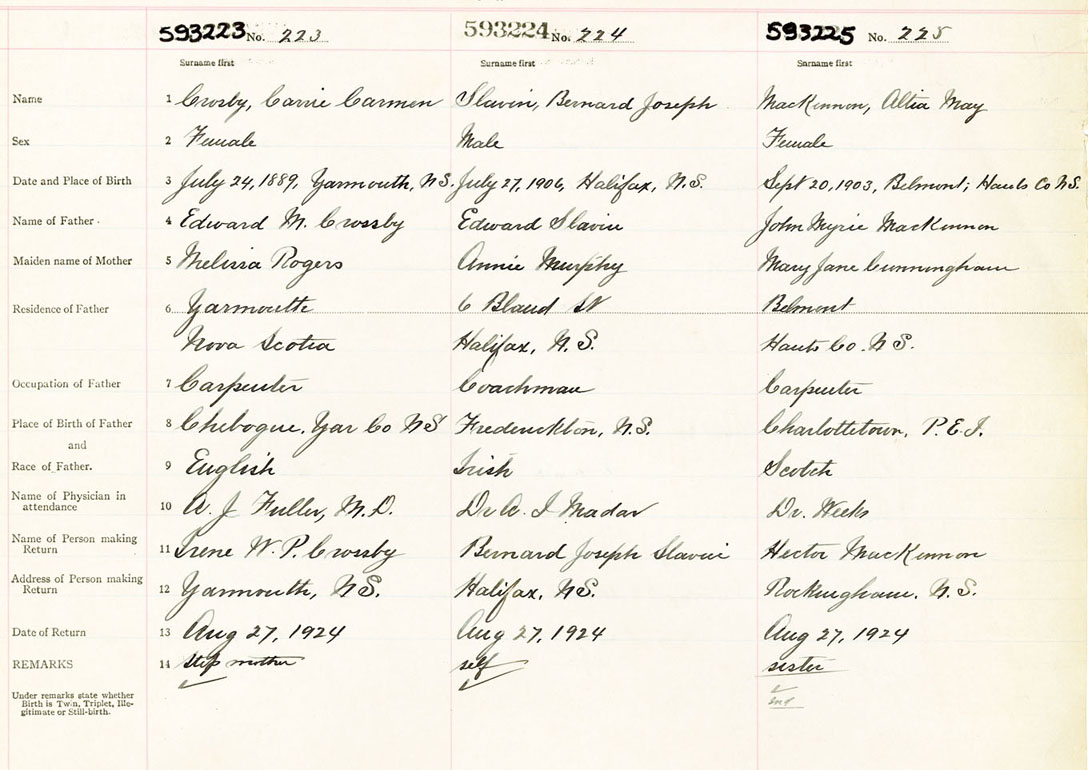 593223 No. 223 593224 No. 224 593225 No. 225
Surname first Surname first Surname first
Name 1 Crosby, Carrie Carmen Slavin, Bernard Joseph MacKinnon, Altia May
Sex 2 Female Male Female
Date and Place of Birth 3 July 24, 1889, Yarmouth, N.S. July 27, 1906, Halifax, N.S. Sept 20, 1903, Belmont, Hants Co N.S.
Name of Father 4 Edward M. Crossby Edward Slavin John Myrie MacKinnon
Maiden name of Mother 5 Melissa Rogers Annie Murphy Mary Jane Cunningham
Residence of Father 6 Yarmouth 6 Bland St Belmont
Nova Scotia Halifax, N.S. Hants Co. N.S.
Occupation of Father 7 Carpenter Coachman Carpenter
Place of Birth of Father 8 Chebogue, Yar Co N.S Fredenickton, N.S. Charlottetown, P.E.I.
and
Race of Father. 9 English Irish Scotch
Name of Physician in
attendance 10 A. J. Fuller, M.D. Dr A. I Madar Dr. Weeks
Name of Person making
Return 11 Irene W. P. Crossby Bernard Joseph Slavin Hector MacKinnon
Address of Person making
Return 12 Yarmouth, N.S. Halifax, N.S. Rockingham, N.S.
Date of Return 13 Aug 27, 1924 Aug 27, 1924 Aug 27, 1924
REMARKS 14 step mother self sister
Under remarks state whether
Birth is Twin, Triplet, Ille-
gitimate or Still-birth.